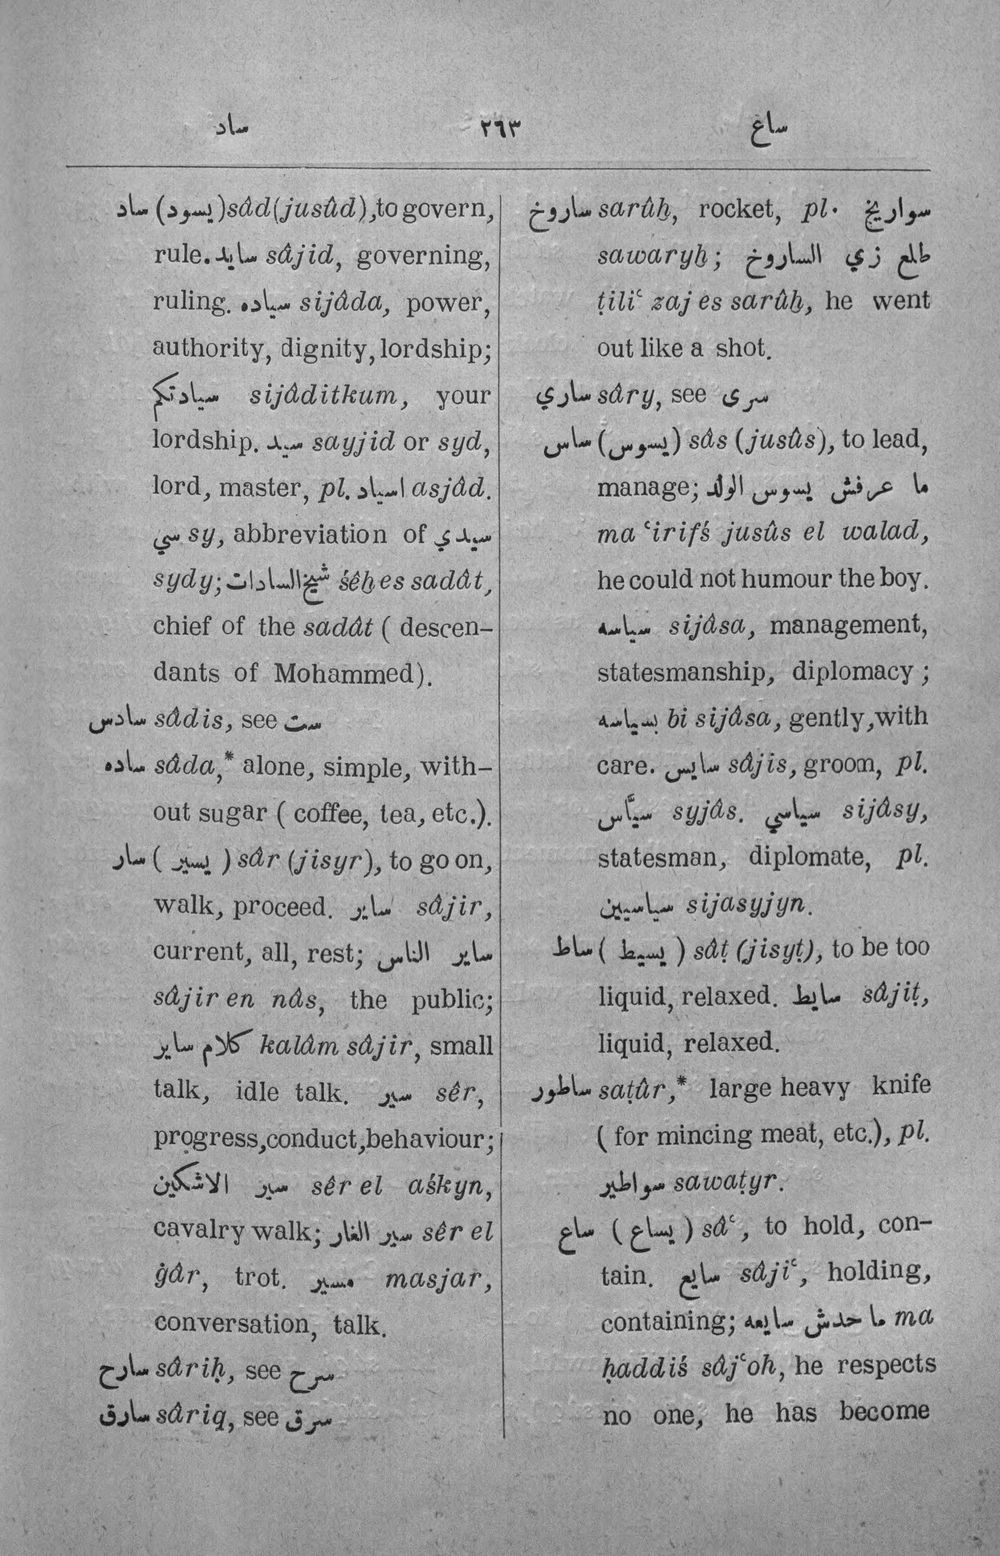 ساد ٢٦٣ ساغ
ساد (يسود) sâd (jusûd), to govern,
rule. سايد sâjid, governing,
ruling. سياده sijâda, power,
authority, dignity, lordship;
سيادتكم sijâditkum, your
lordship. سيد sayjid or syd,
lord, master, pl. اسياد asjâd.
سي sy, abbreviation of سيدي
sydy; شيخ السادات śêẖ es sadât,
chief of the sadât ( descen-
dants of Mohammed).
سادس sâdis, see ست
ساده sâda,* alone, simple, with-
out sugar ( coffee, tea, etc.).
سار ( يسير ) sâr (jisyr), to go on,
walk, proceed. ساير sâjir,
current, all, rest; ساير الناس
sâjir en nâs, the public;
كلام ساير kalâm sâjir, small
talk, idle talk. سير sêr,
progress, conduct, behaviour;
سير الاشكين sêr el aśkyn,
cavalry walk; سير الغار sêr el
ġâr, trot. مسير masjar,
conversation, talk.
سارح sâriḥ, see سرح
سارق sâriq, see سرق
ساروخ sarûẖ, rocket, pl. سواريخ
sawaryẖ; طلع زي الساروخ
ṭiliʿ zaj es sarûẖ, he went
out like a shot.
ساري sâry, see سرى
ساس (يسوس) sâs (jusûs), to lead,
manage; ما عرفش يسوس الولد
ma ʿirifś jusûs el walad,
he could not humour the boy.
سياسه sijâsa, management,
statesmanship, diplomacy ;
بسياسه bi sijâsa, gently, with
care. سايس sâjis, groom, pl.
سيّاس syjâs. سياسي sijâsy,
statesman, diplomate, pl.
سياسيين sijasyjyn.
ساط ( يسيط ) sâṭ (jisyṭ), to be too
liquid, relaxed. سايط sâjiṭ,
liquid, relaxed.
ساطور saṭûr,* large heavy knife
( for mincing meat, etc.), pl.
سواطير sawaṭyr.
ساع ( يساع ) sâʿ, to hold, con-
tain. سايع sâjiʿ, holding,
containing; ما حدش سايعه ma
ḥaddiś sâjʿoh, he respects
no one, he has become